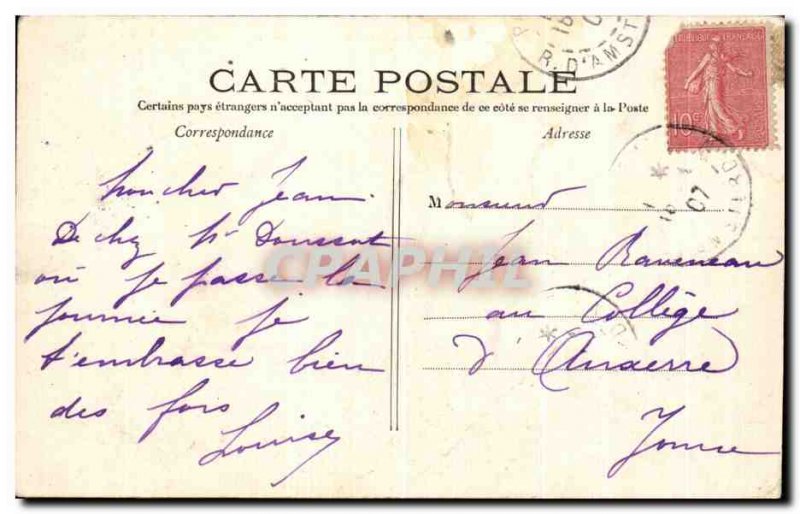 CARTE POSTALE
Certains pays étrangers n'acceptant pas la correspondance de ce côté se renseigner à la Poste
Correspondance
Adresse
Mon cher Jean
De chez Mr Doussot
où je passe la
journée je
t'embrasse bien
des fois
Louise
Monsieur
Jean Raveneau
au Collège
d'Auxerre
Yonne
R. D'AMST
REPUBLIQUE FRANÇAISE
10c
07
CPAPHIL